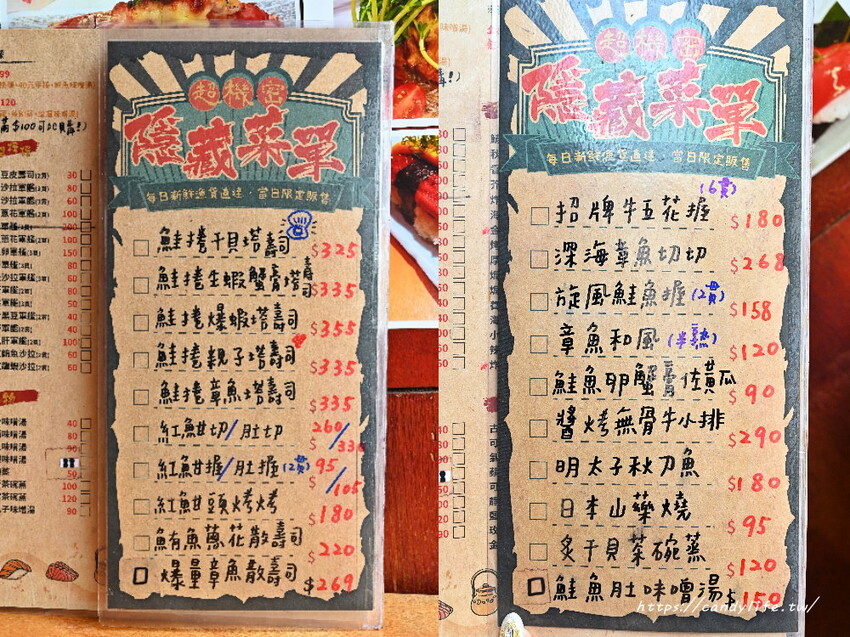 超機密
隱藏菜單
每日新鮮漁貨直達·當日限定販售
鮭捲干貝塔壽司 $325
鮭捲生蝦蟹膏塔壽司 $335
鮭捲爆蝦塔壽司 $355
鮭捲親子塔壽司 $335
鮭捲章魚塔壽司 $335
紅魽切/肚切 260/330
紅魽握/肚握(2貫) $95/105
紅魽頭烤烤 $180
鮪魚蔥花散壽司 $220
爆量章魚散壽司 $269
超機密
隱藏菜單
每日新鮮漁貨直達·當日限定販售
招牌牛五花握 (6貫) $180
深海章魚切切 $268
旋風鮭魚握(2貫) $158
章魚和風(半熟) $120
鮭魚卵蟹膏佐黃瓜 $90
醬烤無骨牛小排 $290
明太子秋刀魚 $180
日本山藥燒 $95
炙干貝茶碗蒸 $120
鮭魚肚味噌湯 $150
https://candylife.tw/